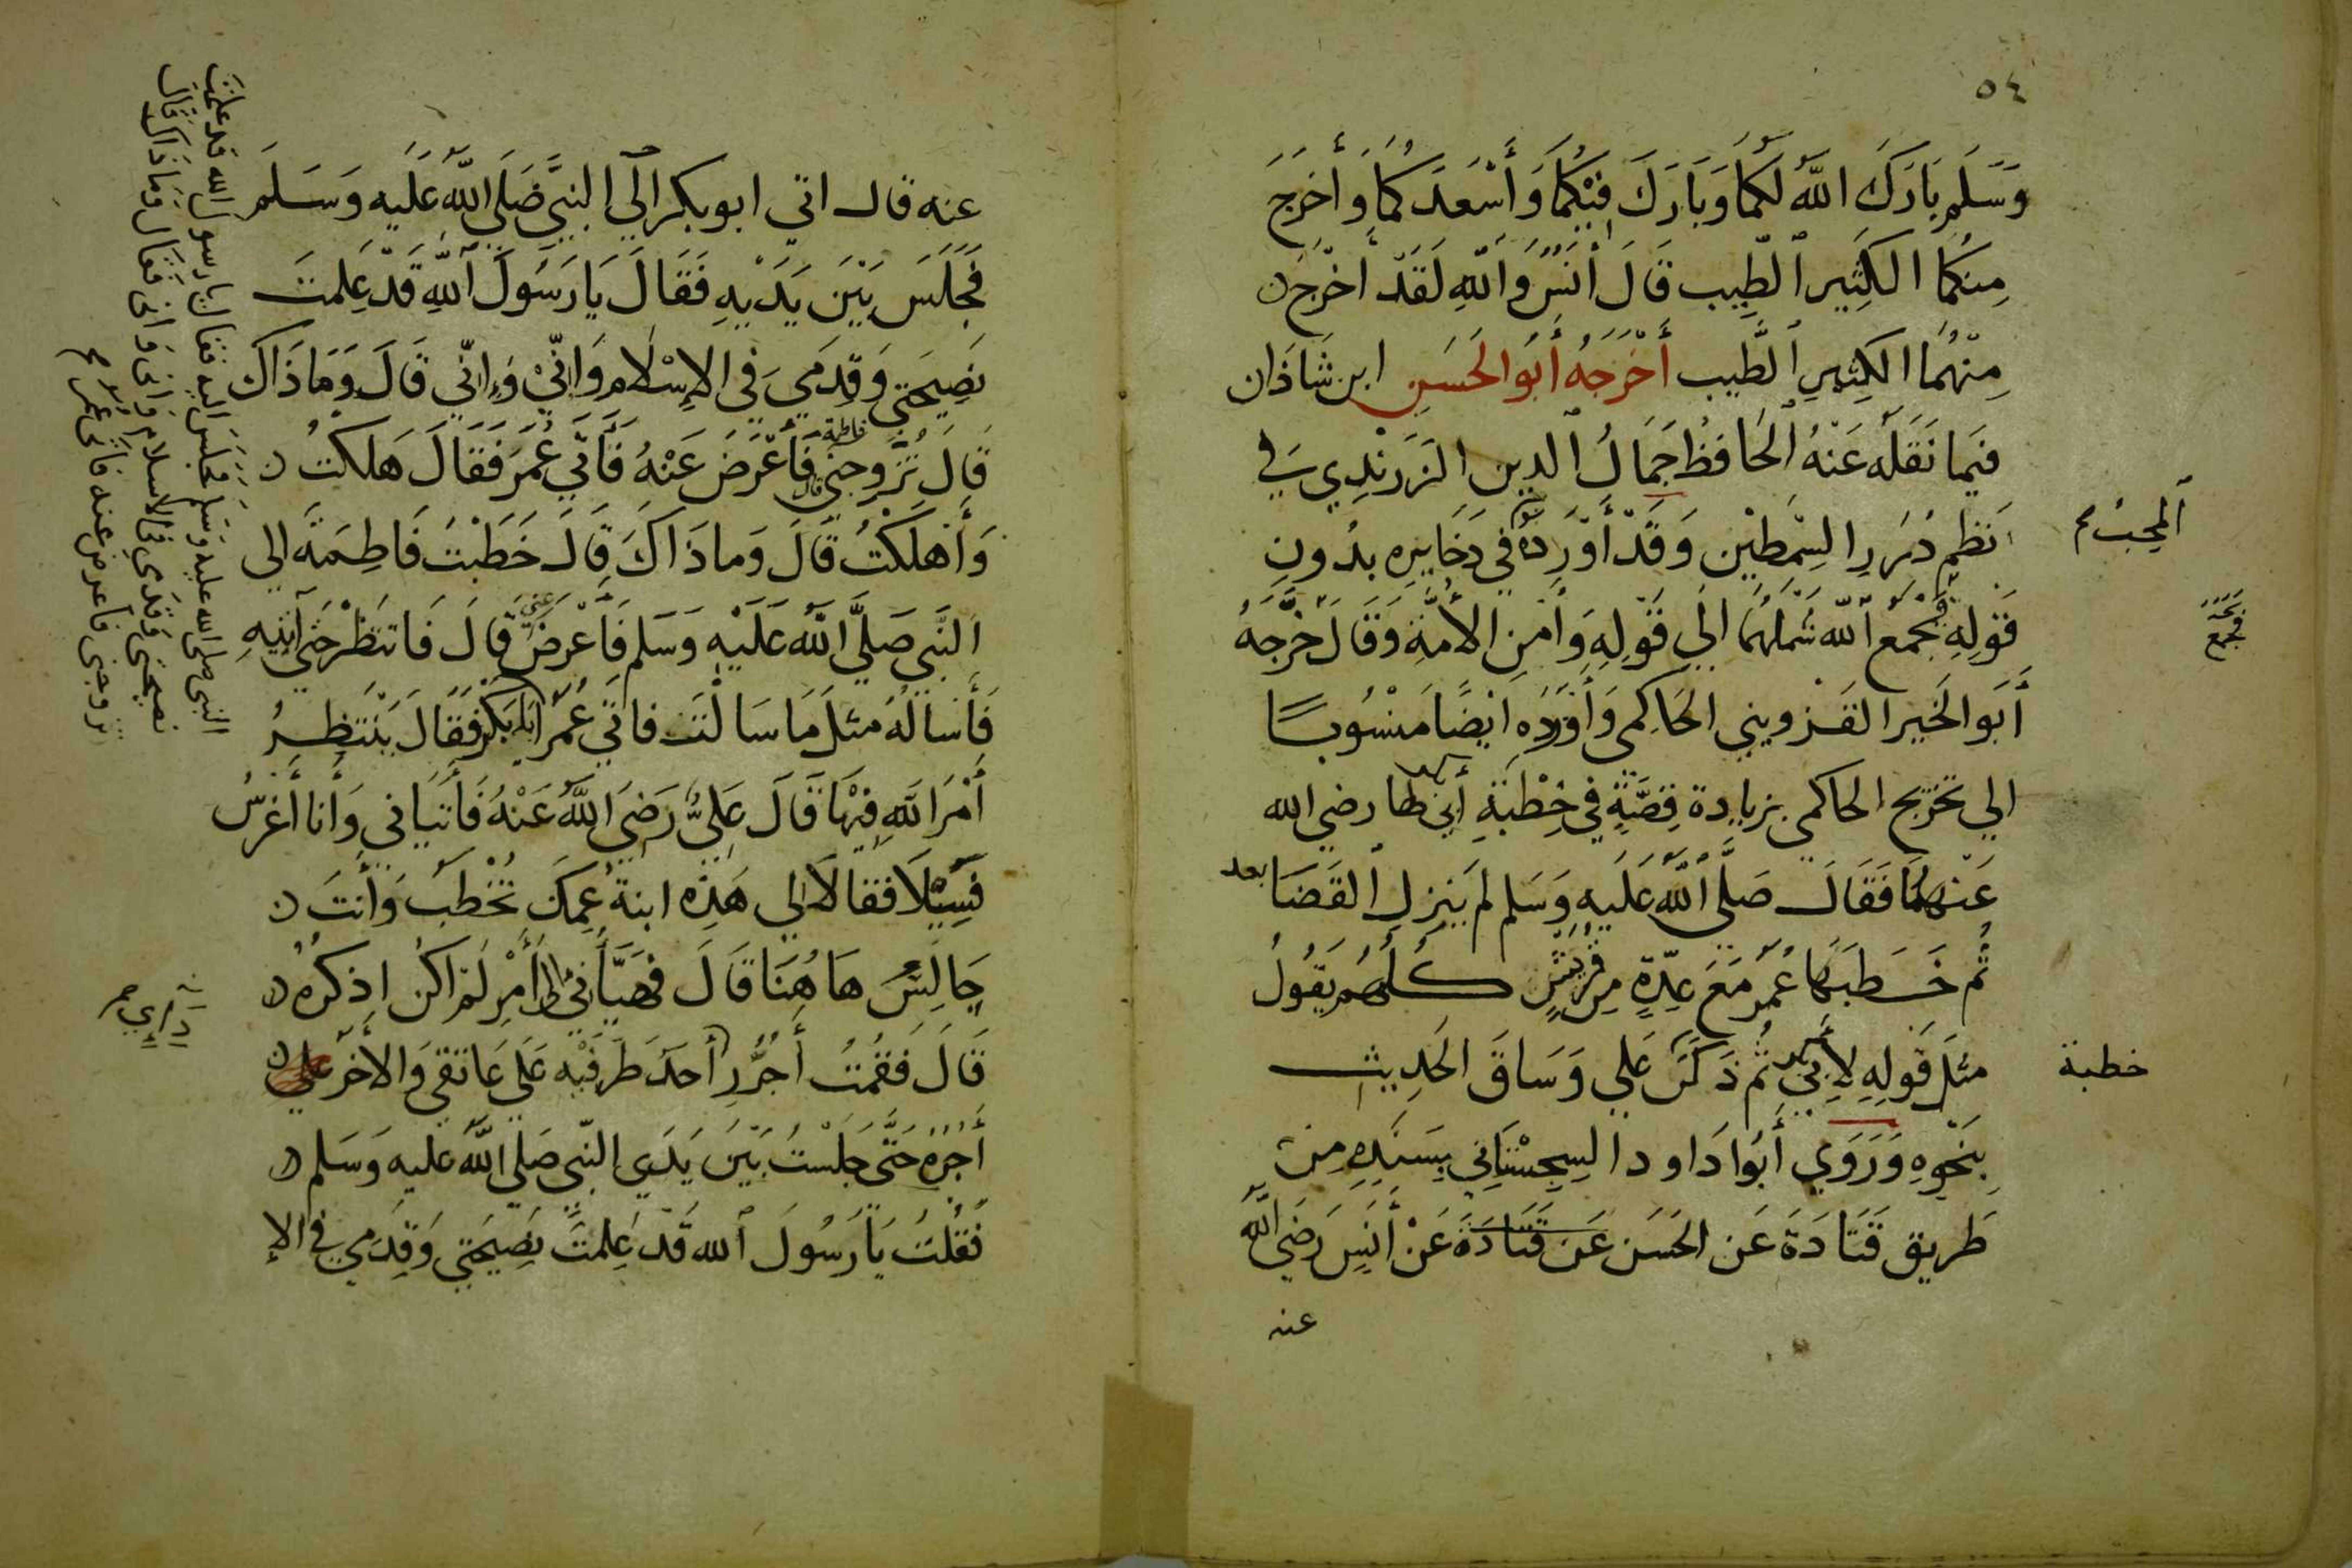 ٥٤
وَسَلَم بَارَكَ اللّه لَكُمَا وَبَارَكَ فِيْكُمَا وَأَسْعَدَكُمَا وَأَخرَجَ
مِنكُما الكَثِير الطّيِب قَالَ أنَسٌ وَاللّهِ لَقَدْ أخْرَجَ
مِنْهُمَا الكَثِيرِ الطَّيِب أَخْرَجَهُ أبُو الحَسَنِ ابن شَاذَان
فيمَا نَقَلَه عَنْهُ الحَافظُ جَمَالُ الدين الزَرَنْدِي في
نَظِم دُرَرِ السِّمطَيْن وَقَدْ أَوْرَدَهُ في ذَخَايِره بدُونِ
المحِبُ
قَولِهِ فَجَمَع اللّه شَمْلَهُمَا الي قَوْلِهِ وَأمْنِ الأُمَّةِ وَقَالَ خَرَّجَهُ
فجمع
أَبَوا الخَير القَزويني الحَاكِمي وَأَوْرَدَه ايْضًا مَنْسُوبًا
الي تخرْيج الحاكمي بزيادة قِصَّةٍ في خِطْبَةِ أبي بكر لها رضي الله
عَنْهمَا فَقَالَ صَلَّى اللّه عَلَيهِ وَسَلم لم يَنزِلِ القَضَا بعد
ثُم خَطَبَهَا عُمَر مَعَ عِدّةٍ مِن قُرَيْشٍ كُلّهُم يَقُولُ
مثل قَولِهِ لأَبِي بكر ثُم ذَكَرَ عَلي وَسَاقَ الحَدِيث
خطبة
بِنَحْوِهِ وَرَوَي أَبُوا دَاود السِجِسْتَانِي بِسَنَدِهِ مِن
طَرِيق قَتَادَةَ عَن الحَسَن عَن قَتَادَةَ عَنْ أَنَسٍ رَضِيَ اللّه
عنه
عنه قال اتي ابو بكر الي النبيَّ صَلَى اللّه عَلَيه وَسَلمَ
فَجَلَسَ بَيْنَ يَدَيْهِ فَقَالَ يَا رَسُولَ اللّهِ قَدْ عَلِمتَ
نَصِيحَتي وَقِدَمي في الإسْلَام وَانّيْ وَإنّي قَالَ وَمَا ذَاكَ
قَال تُزَوجني فاطمة قال فَأَعْرَضَ عَنْهُ فَأتَي عُمَرَ فَقَالَ هَلكتُ
وَأَهلَكْتُ قَالَ وَما ذَاكَ قالَ خَطَبْتُ فَاطِمَةَ الي
النَّبي صَلَّى اللَّه عَلَيْهِ وَسَلم فَأَعْرَضَ عَنّي قَالَ فَانتَظْر حَتي آتِيهِ
فَأسالهُ مثل مَا سَالْتَ فاتي عُمَر أبا بَكْر فَقَالَ يَنْتَظِرُ
أَمْرَ اللّهِ فِيْهَا قَالَ عَلِيٌّ رَضي اللّهُ عَنْهُ فَأتيَاني وَأَنا أغرْسُ
فَسِيْلًا فقالَا لي هَذِه ابنةُ عَمِكَ تُخْطَبُ وَأنتَ
جَالِسٌ هَا هُنَا قَالَ فهَيَّأني لأَمْرٍ لَمْ اكن اذكرهُ
قَالَ فَقُمْتُ أَجُرُّ ردَاءي أحَدَ طَرَفَيْه عَلَى عَاتقي وَالأَخَر
أَجُرّه حَتَّى جَلَسْتُ بَيْنَ يَدَي النّبي صَلَى اللَّه عليه وَسَلم
فَقُلتُ يَا رَسُولَ الله قَد عَلِمتَ نَصِيحَتي وَقِدَمي في الإ
النبي صلي الله عليه وسلم فجلس اليه فقال يا رسول الله قد علمت
نصيحتي وقدمي في الاسلام واني واني فقال وما ذاك قال
تزوجني فأعرض عنه فأتى عمر